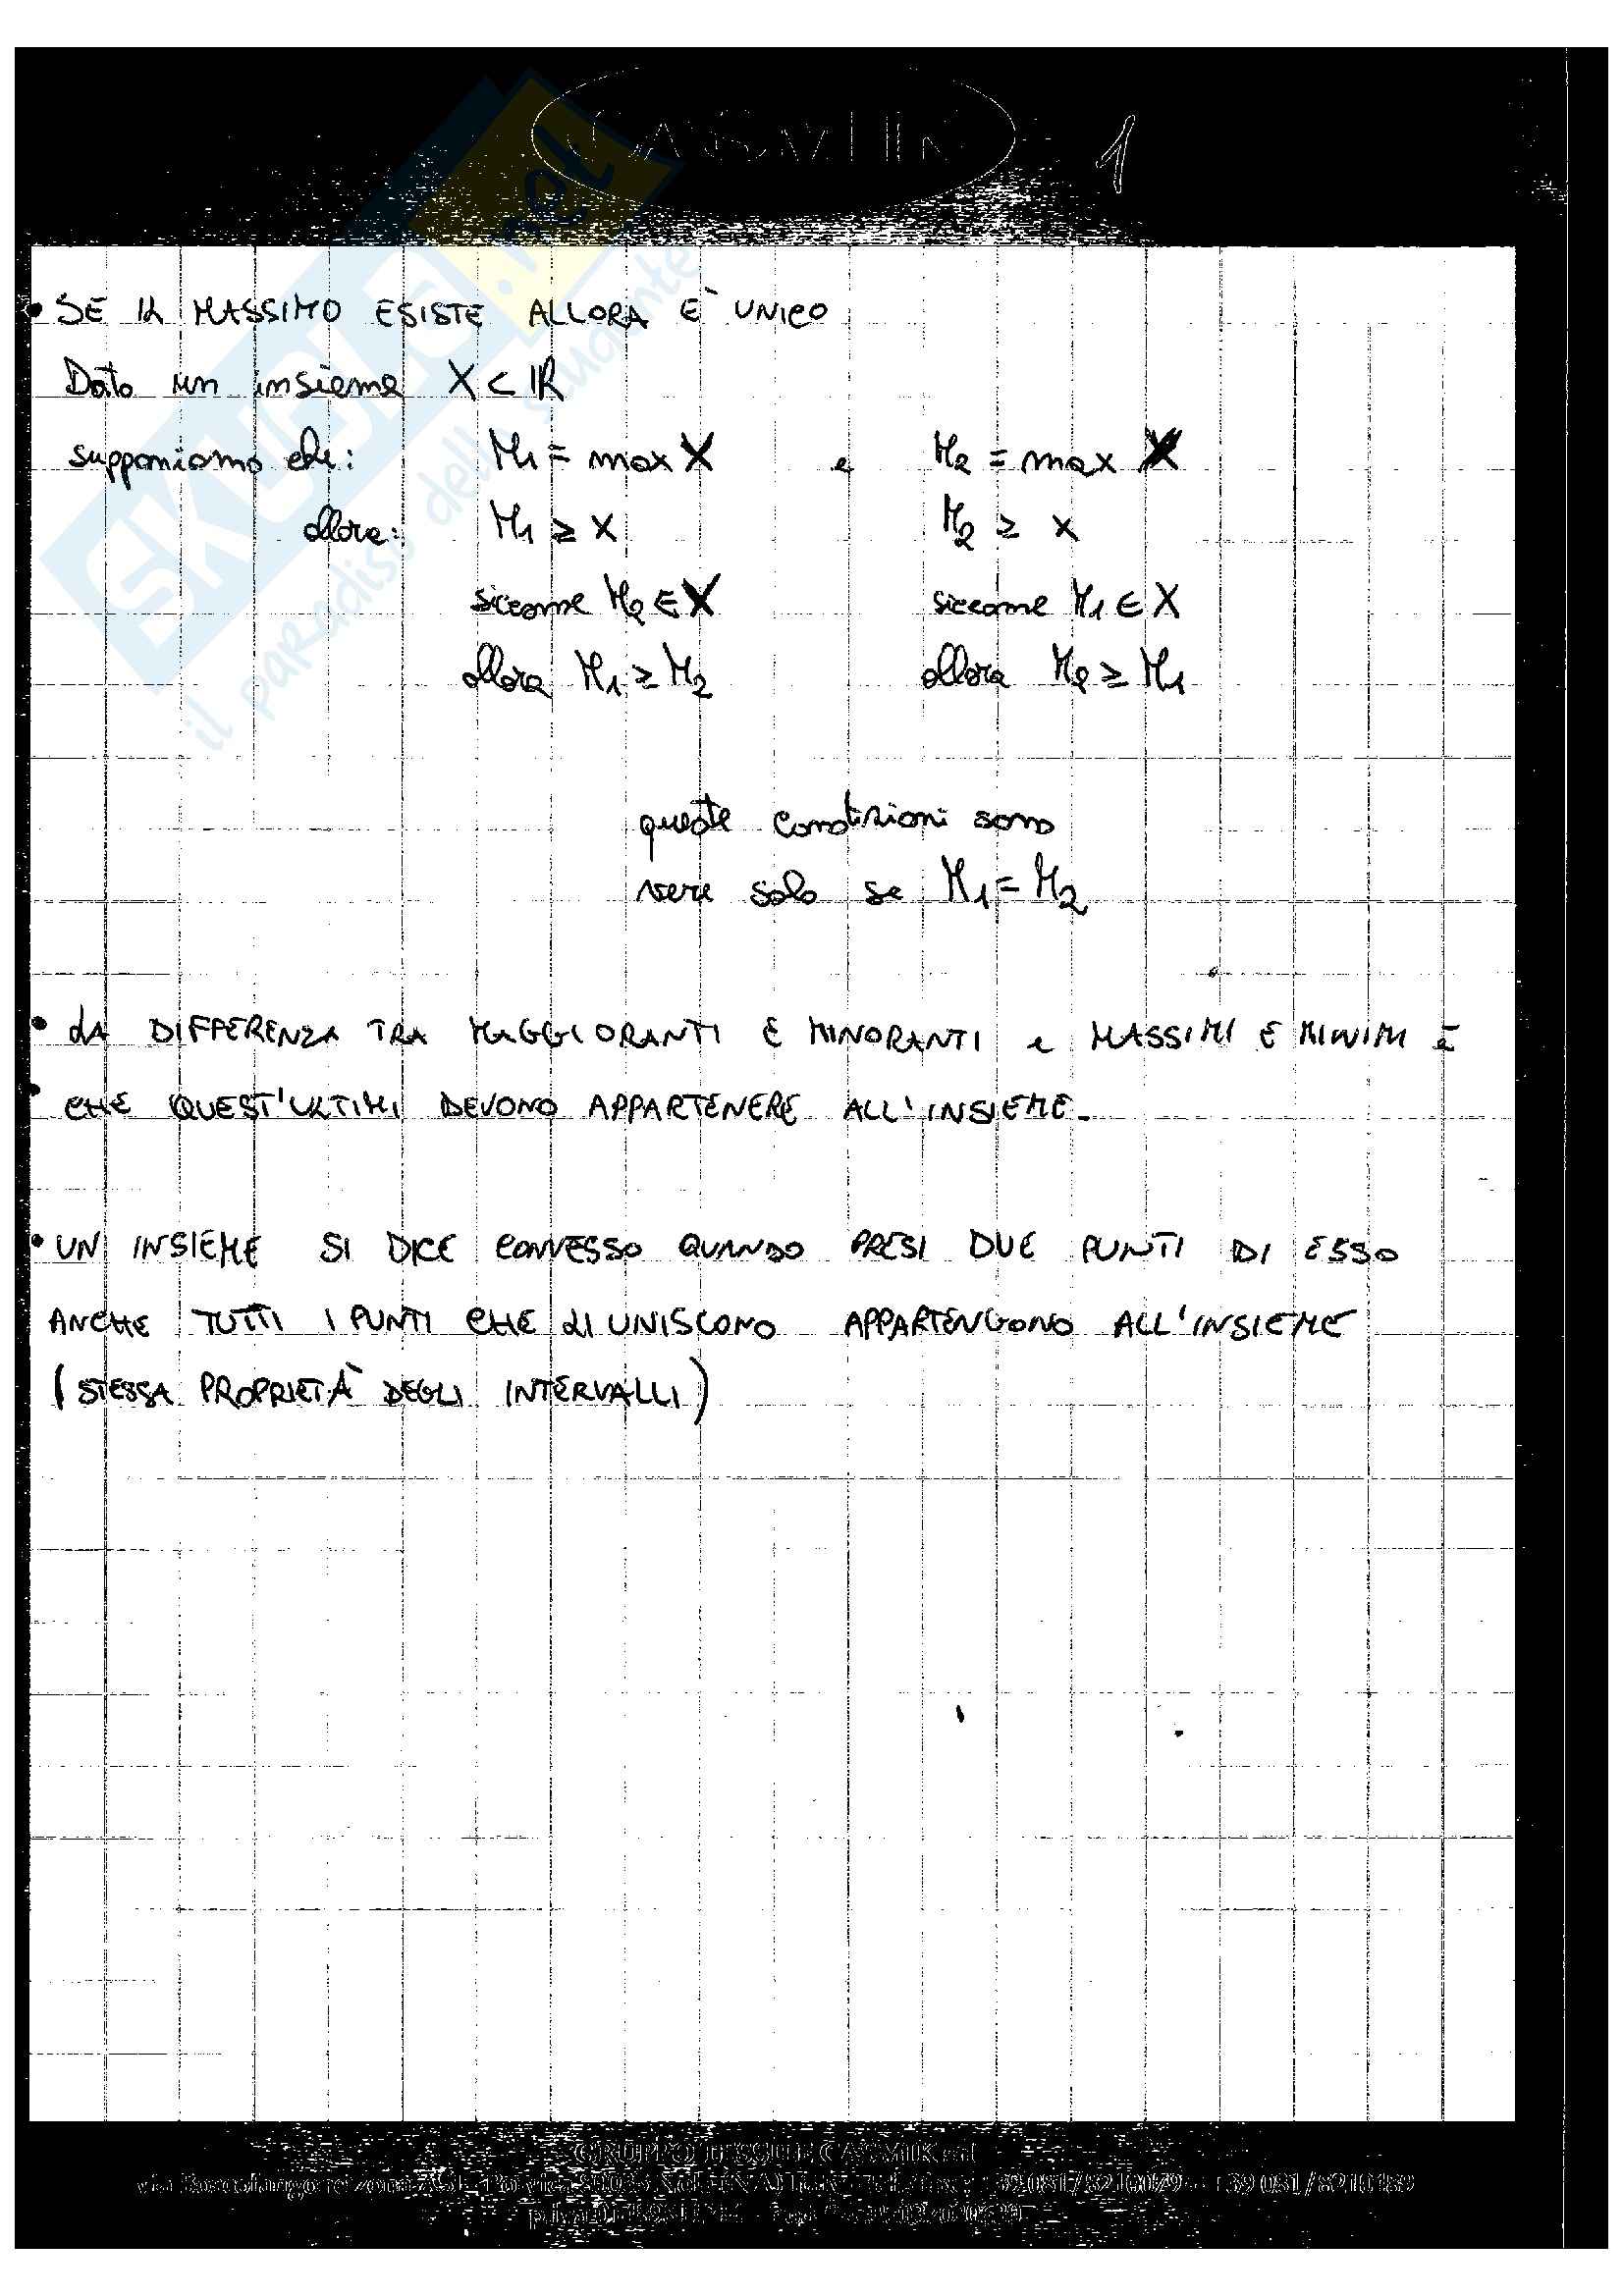 CASMIK 1
• SE IL MASSIMO ESISTE ALLORA E' UNICO
Dato un insieme X ⊂ ℝ
supponiamo che: M₁ = max X e M₂ = max X
allora: M₁ ≥ x M₂ ≥ x
siccome M₂ ∈ X siccome M₁ ∈ X
allora M₁ ≥ M₂ allora M₂ ≥ M₁
queste condizioni sono
vere solo se M₁ = M₂
• LA DIFFERENZA TRA MAGGIORANTI E MINORANTI e MASSIMI E MINIMI è
• CHE QUEST'ULTIMI DEVONO APPARTENERE ALL'INSIEME.
• UN INSIEME SI DICE CONVESSO QUANDO PRESI DUE PUNTI DI ESSO
ANCHE TUTTI I PUNTI CHE LI UNISCONO APPARTENGONO ALL'INSIEME
(STESSA PROPRIETÀ DEGLI INTERVALLI)
SKUOLA.net
il paradiso dello studente
GRUPPO TESSILE CASMIK srl